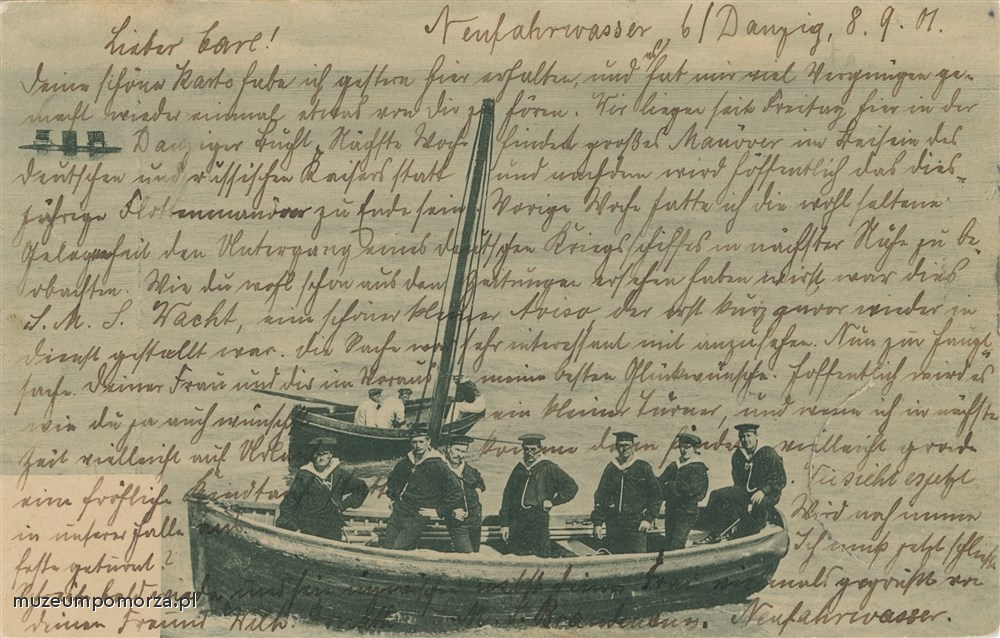 Neufahrwasser b/Danzig, 8. 9. 01.
Lieber Carl!
Deine schöne Karte habe ich gestern hier erhalten, und es hat mir viel Vergnügen ge-
macht wieder einmal etwas von dir zu hören. Wir liegen seit Freitag hier in der
Danziger Bucht. Nächste Woche findet großes Manöver im Beisein des
deutschen und russischen Kaisers statt und nachdem wird hoffentlich das dies-
jährige Flottenmanöver zu Ende sein. Vorige Woche hatte ich die wohl seltene
Gelegenheit den Untergang eines deutschen Kriegsschiffes in nächster Nähe zu be-
obachten. Wie du wohl schon aus den Zeitungen ersehen haben wirst, war dies
S. M. S. Wacht, ein schöner kleiner Aviso der erst kurz zuvor wieder in
dienst gestellt war. Die Sache war sehr interessant mit anzusehen. Nun zur Haupt-
sache. Deiner Frau und dir im Voraus meine besten Glückwünsche. Hoffentlich wird es
wie du ja auch wünschst ein kleiner Turner, und wenn ich in nächster
Zeit vielleicht auf Urlaub komme dann findet vielleicht grade
eine fröhliche Kindtaufe statt. Wie sieht es jetzt
in unserer Halle aus Wird noch immer
feste geturnt? Ich muß jetzt schließen
Schreib bald wieder und sei inzwischen nebst deiner Frau vielmals gegrüßt von
deinem Freund Wilh. S. M. S. Brandenburg. Neufahrwasser.
muzeumpomorza.pl